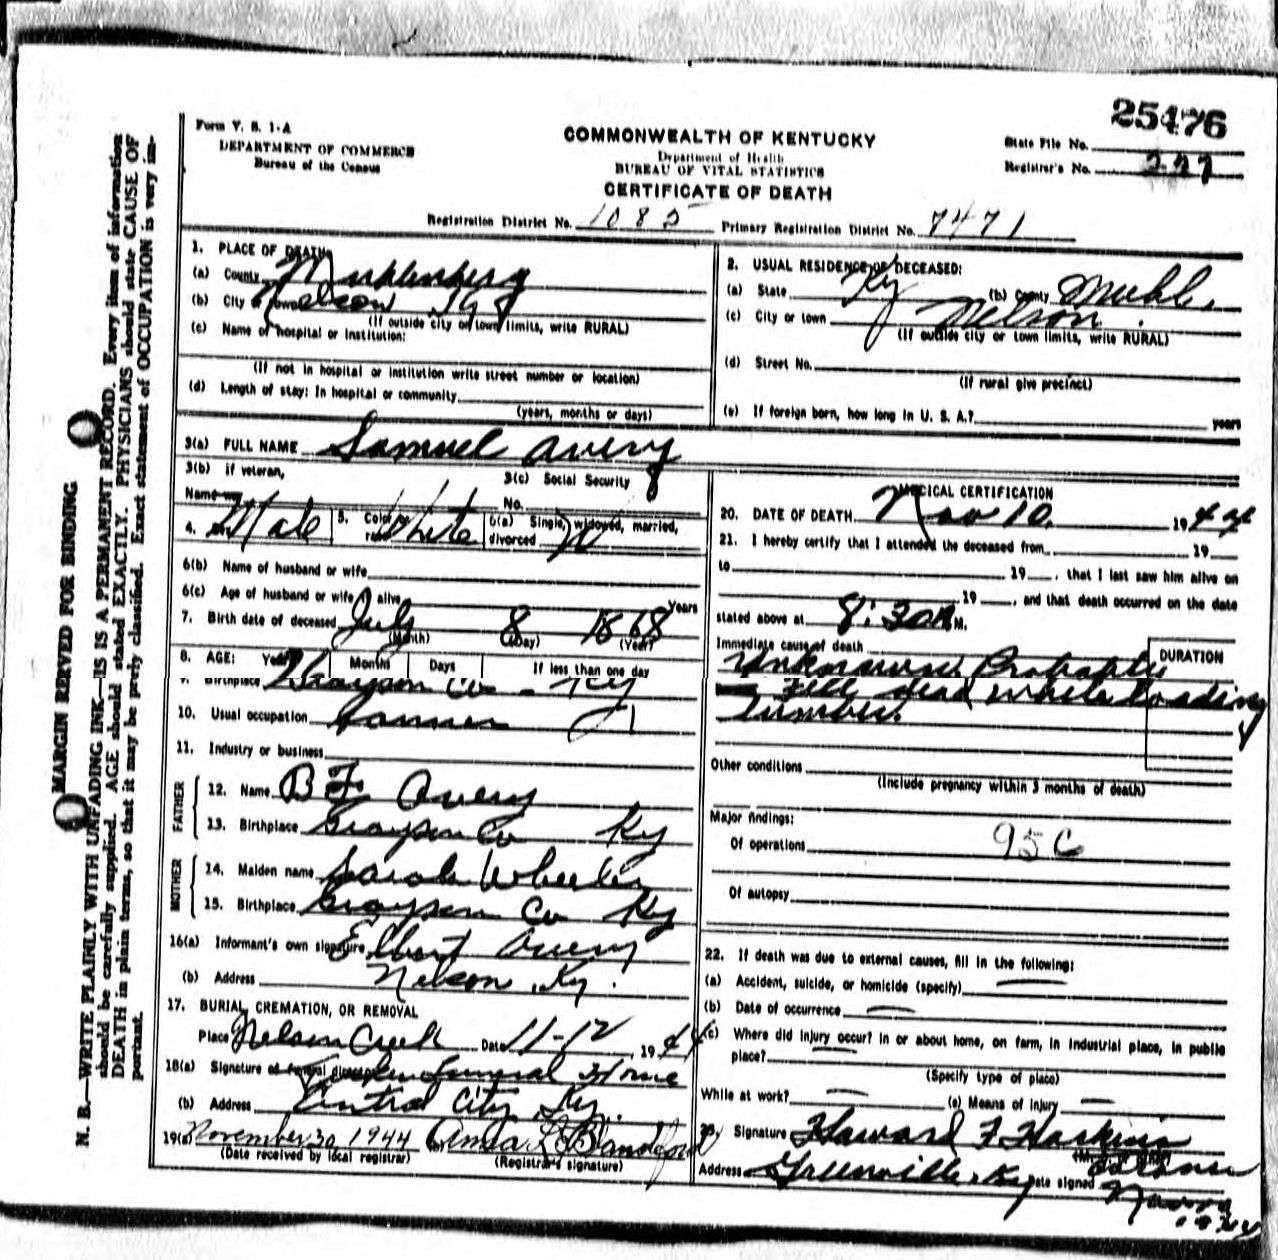 25476
Form V. S. 1-A
DEPARTMENT OF COMMERCE
Bureau of the Census
COMMONWEALTH OF KENTUCKY
Department of Health
BUREAU OF VITAL STATISTICS
CERTIFICATE OF DEATH
State File No.
Registrar's No. 297
Registration District No. 1085 Primary Registration District No. 7471
1. PLACE OF DEATH
(a) County Muhlenberg
(b) City or town Nelson Ky
(If outside city or town limits, write RURAL)
(c) Name of hospital or institution:
(If not in hospital or institution write street number or location)
(d) Length of stay: In hospital or community
(years, months or days)
2. USUAL RESIDENCE OF DECEASED:
(a) State Ky (b) County Muhl.
(c) City or town Nelson.
(If outside city or town limits, write RURAL)
(d) Street No.
(If rural give precinct)
(e) If foreign born, how long in U. S. A.? years
3(a) FULL NAME Samuel Avery
3(b) if veteran,
Name war
3(c) Social Security
No.
4. Male 5. Color White 6(a) Single, widowed, married,
divorced W
6(b) Name of husband or wife
6(c) Age of husband or wife if alive Years
7. Birth date of deceased July 8 1868
(Month) (Day) (Year)
8. AGE: Years Months Days If less than one day
Birthplace Grayson Co - Ky
10. Usual occupation Farmer
11. Industry or business
FATHER
12. Name B F Avery
13. Birthplace Grayson Co Ky
MOTHER
14. Maiden name Sarah Wheeler
15. Birthplace Grayson Co Ky
16(a) Informant's own signature Elbert Avery
(b) Address Nelson, Ky.
17. BURIAL, CREMATION, OR REMOVAL
Place Nelson Creek Date 11-12, 1944
18(a) Signature of funeral director Tucker Funeral Home
(b) Address Central City Ky.
19(a) November 30 1944 (b) Amea L. Blandford
(Date received by local registrar) (Registrar's signature)
MEDICAL CERTIFICATION
20. DATE OF DEATH Nov 10, 1944
21. I hereby certify that I attended the deceased from 19
to 19 , that I last saw him alive on
19 , and that death occurred on the date
stated above at 8:30 A M.
Immediate cause of death DURATION
Unknown Probably
Fell dead while loading
lumber.
Other conditions
(Include pregnancy within 3 months of death)
Major findings:
Of operations 95C
Of autopsy
22. If death was due to external causes, fill in the following:
(a) Accident, suicide, or homicide (specify) —
(b) Date of occurrence —
(c) Where did injury occur? In or about home, on farm, in industrial place, in public
place? —
(Specify type of place)
While at work? — (e) Means of injury —
23. Signature Howard F Haskins
Coroner
Address Greenville, Ky Date signed
1944
MARGIN RERVED FOR BINDING
N. B.—WRITE PLAINLY WITH UNFADING INK—THIS IS A PERMANENT RECORD. Every item of information
should be carefully supplied. AGE should stated EXACTLY. PHYSICIANS should state CAUSE OF
DEATH in plain terms, so that it may be properly classified. Exact statement of OCCUPATION is very im-
portant.